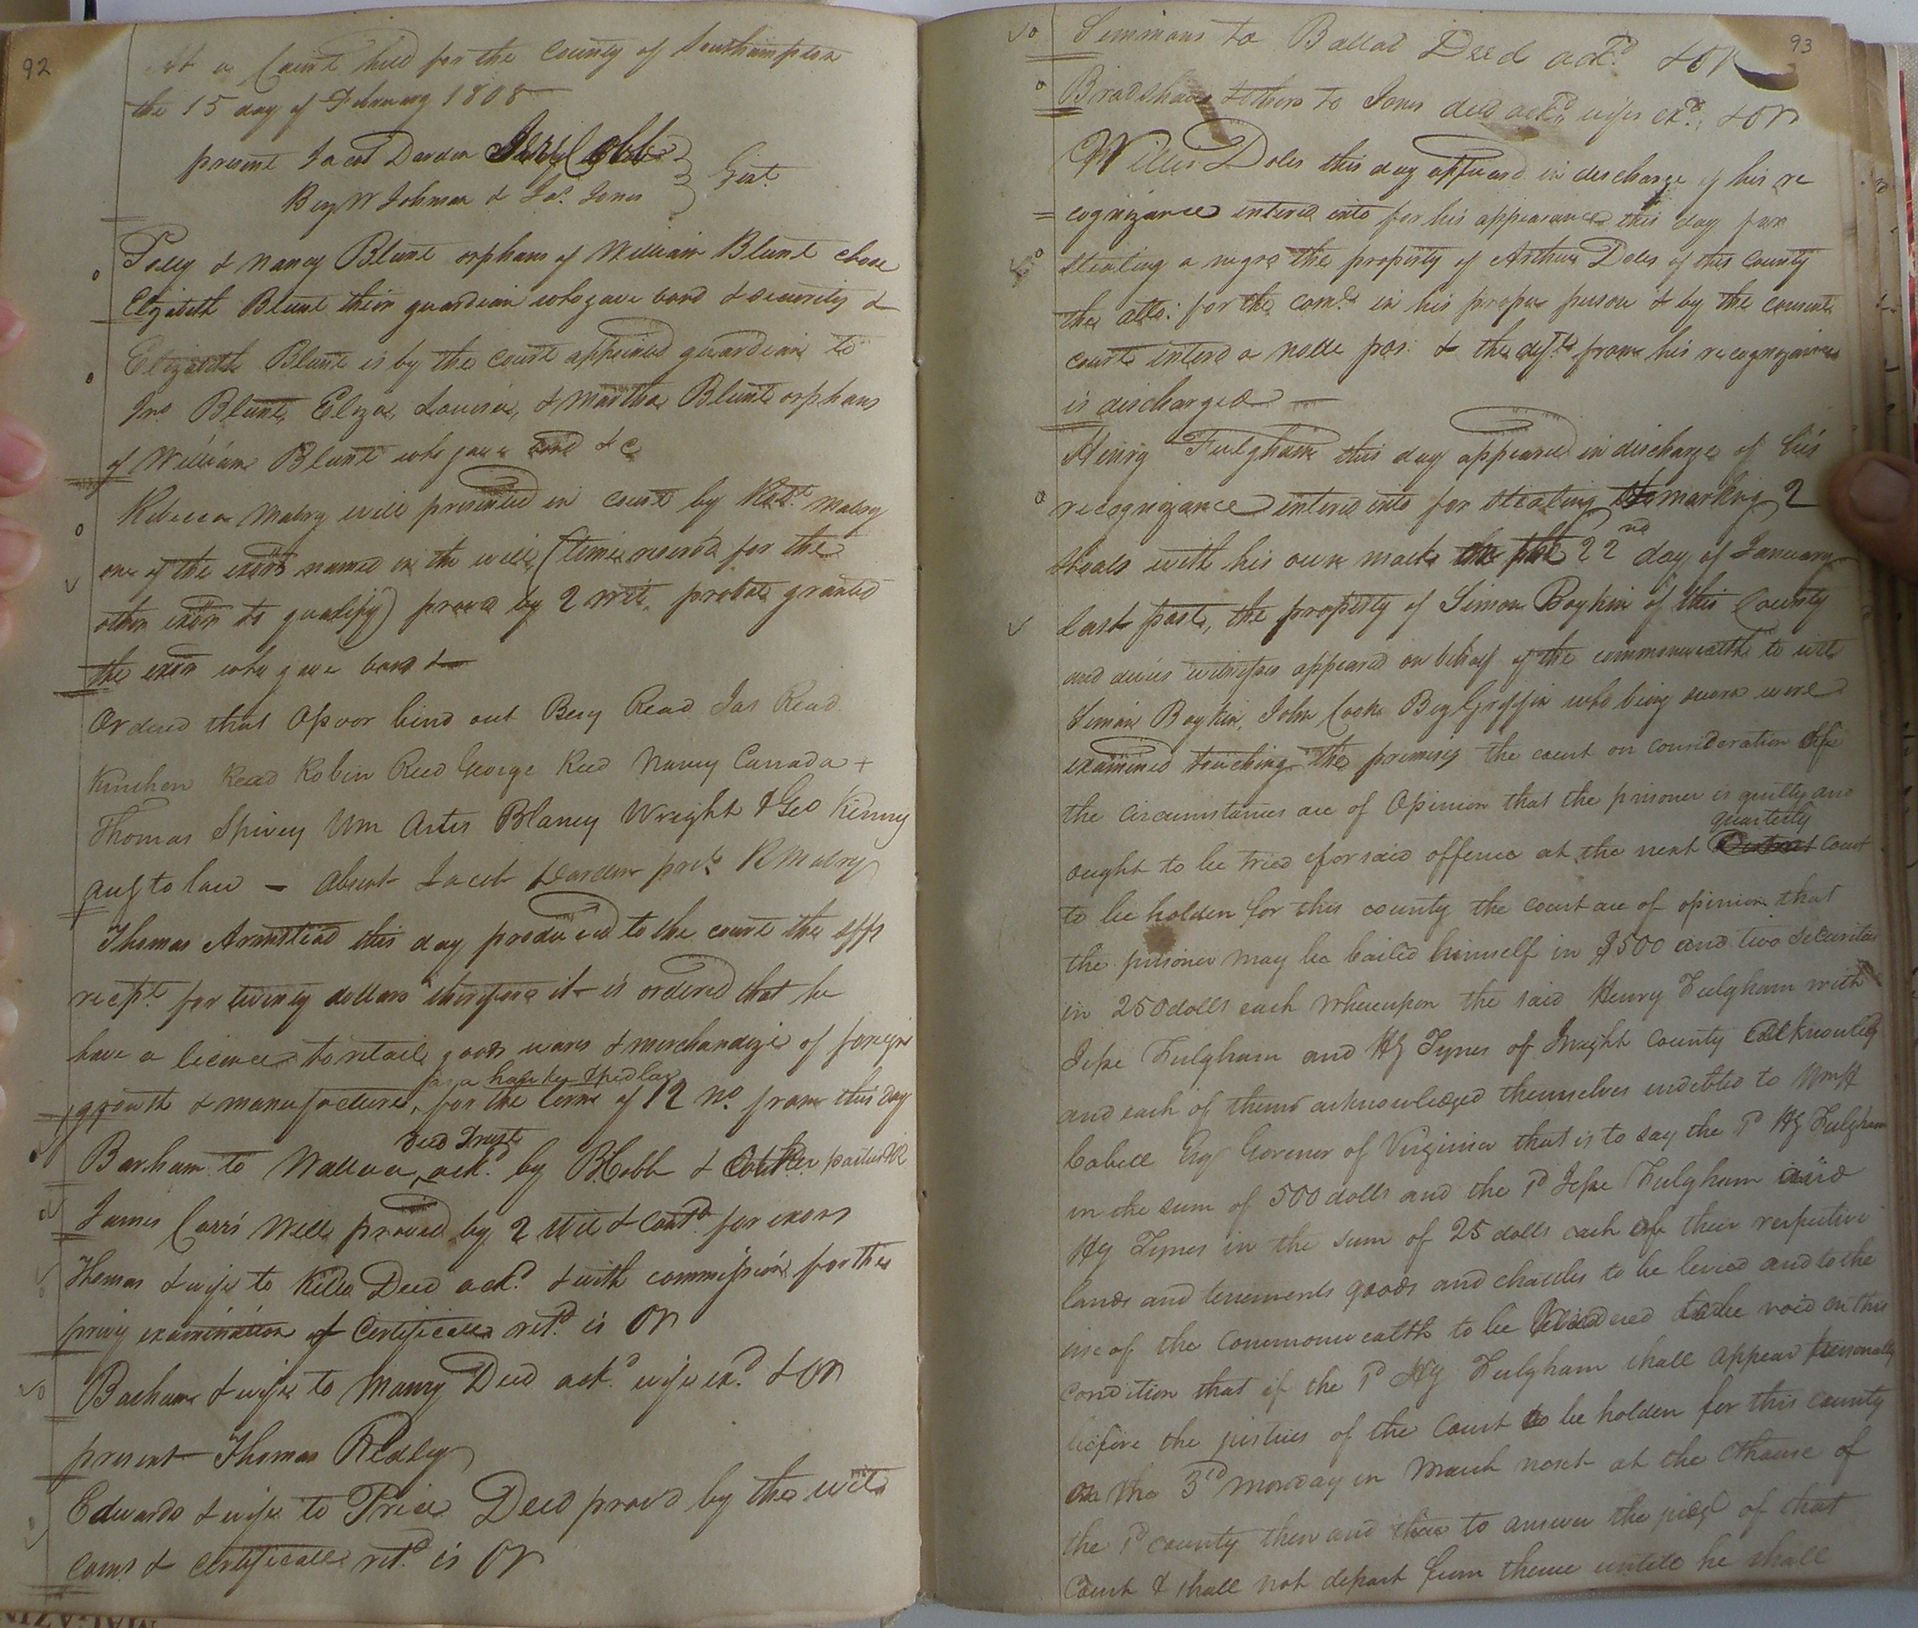 92
At a Court held for the County of Southampton
the 15 day of February 1808
present Jacob Darden Jery Cobb
Benj W Johnson & Jas. Jones Gent.
Polly & Nancy Blunt orphans of William Blunt chose
Elizabeth Blunt their guardian who gave bond & security &
Elizabeth Blunt is by the court appointed guardian to
Jno Blunt, Eliza, Louisa, & Martha Blunt orphans
of William Blunt who gave bond &c
Rebecca Mabry will presented in court by Robt. Mabry
one of the exors named in the will (time reserved for the
other exor to qualify) proved by 2 wit. probate granted
the exor who gave bond &
Ordered that Opoor bind out Benj Read Jas Read
Kinchen Read Robin Reed George Reed Nancy Canada +
Thomas Spivey Wm Artis Blaney Wright & Geo Kinny
to law - absent Jacob Darden prest. R Mabry
Thomas Armstead this day produced to the court the sffs
recpt. for twenty dollars therefore it is ordered that he
have a licence to retail goods wares & merchandize of foreign
as a hawker & pedlar
growth & manufacture, for the term of 12 mo. from this day
deed Trust
Barham to Wallace, ackd. by B Cobb & other parties OR
James Carrs Will proved by 2 wit & contd. for exors
Thomas & wife to Kello Deed ackd. & with commission for the
privy examination & Certificate retd. is OR
Barham & wife to Maney Deed ackd. wife exd. & OR
present Thomas Ridley
Edwards & wife to Price Deed proved by the wits
coms. & certificate retd. is OR
93
Simmons to Ballad Deed ackd. & OR
Bradshaw & others to Jones deed ackd., wifes exd., & OR
Willis Doles this day appeared in discharge of his re
cognizance entered into for his appearance this day for
stealing a negro the property of Arthur Doles of this County
the atto: for the comth. in his proper person & by the consent
court entered a nolle pros: & the deft. from his recognizance
is discharged
Henry Fulgham this day appeared in discharge of his
recognizance entered into for stealing marking 2
shoats with his own mark the 22nd day of January
last past, the property of Simon Boykin of this County
and divers witnesses appeared on behalf of the commonwealth to wit
Simon Boykin, John Cooke Benj Griffin who being sworn were
examined touching the premises the court on consideration of the
the circumstances are of Opinion that the prisoner is guilty and
quarterly
ought to be tried for said offence at the next District Court
to be holden for this county the court are of opinion that
the prisoner may be bailed himself in $500 and two Securities
in 250 dolls each Whereupon the said Henry Fulgham with
Jesse Fulgham and Hy Tynes of Iwight County acknowledg
and each of them acknowledged themselves indebted to WmH
Cabell Esqr Govenor of Virginia that is to say the sd Hy Fulgham
in the sum of 500 dolls and the sd Jesse Fulgham and
Hy Tynes in the sum of 25 dolls each of their respective
lands and tenements goods and chattles to be levied and to the
use of the Commonwealth to be rendered to be void on this
condition that if the sd Hy Fulgham shall appear personally
before the justices of the Court to be holden for this county
on the 3rd monday in March next at the Chouse of
the sd county then and there to answer the judgt of that
court & shall not depart from thence untill he shall